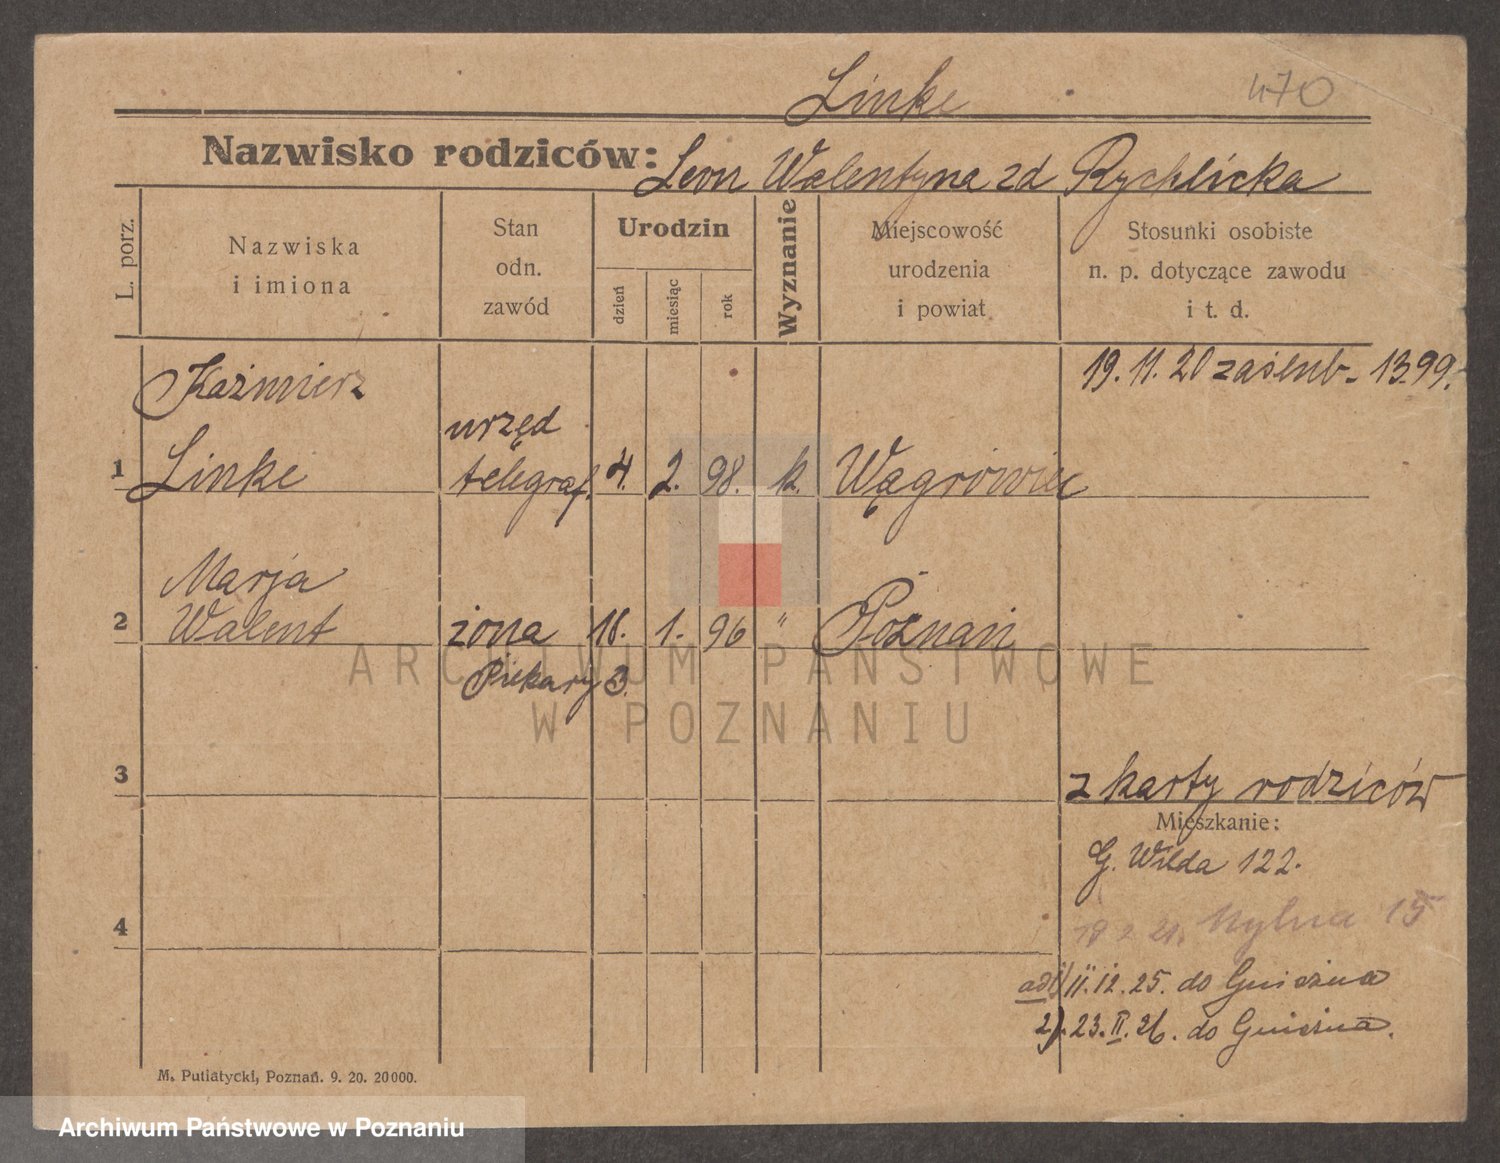 Linke 470
Nazwisko rodziców: Leon Walentyna zd Rychlicka
L. porz.
Nazwiska
i imiona
Stan
odn.
zawód
Urodzin
dzień
miesiąc
rok
Wyznanie
Miejscowość
urodzenia
i powiat
Stosunki osobiste
n. p. dotyczące zawodu
i t. d.
Kaźmierz 19. 11. 20 zaślub- 1399.
urzęd
1 Linke telegraf. 4. 2. 98. k. Wągrówiec
Marja
2 Walent żona 18. 1. 96 " Poznań
Piekary 3.
ARCHIWUM PAŃSTWOWE
W POZNANIU
3 z karty rodziców
Mieszkanie:
G. Wilda 122.
4 18 2 21. Mylna 15
ad 1) 11. 12. 25. do Gniezna
2). 23. II. 26. do Gniezna.
M. Putiatycki, Poznań. 9. 20. 20000.
Archiwum Państwowe w Poznaniu